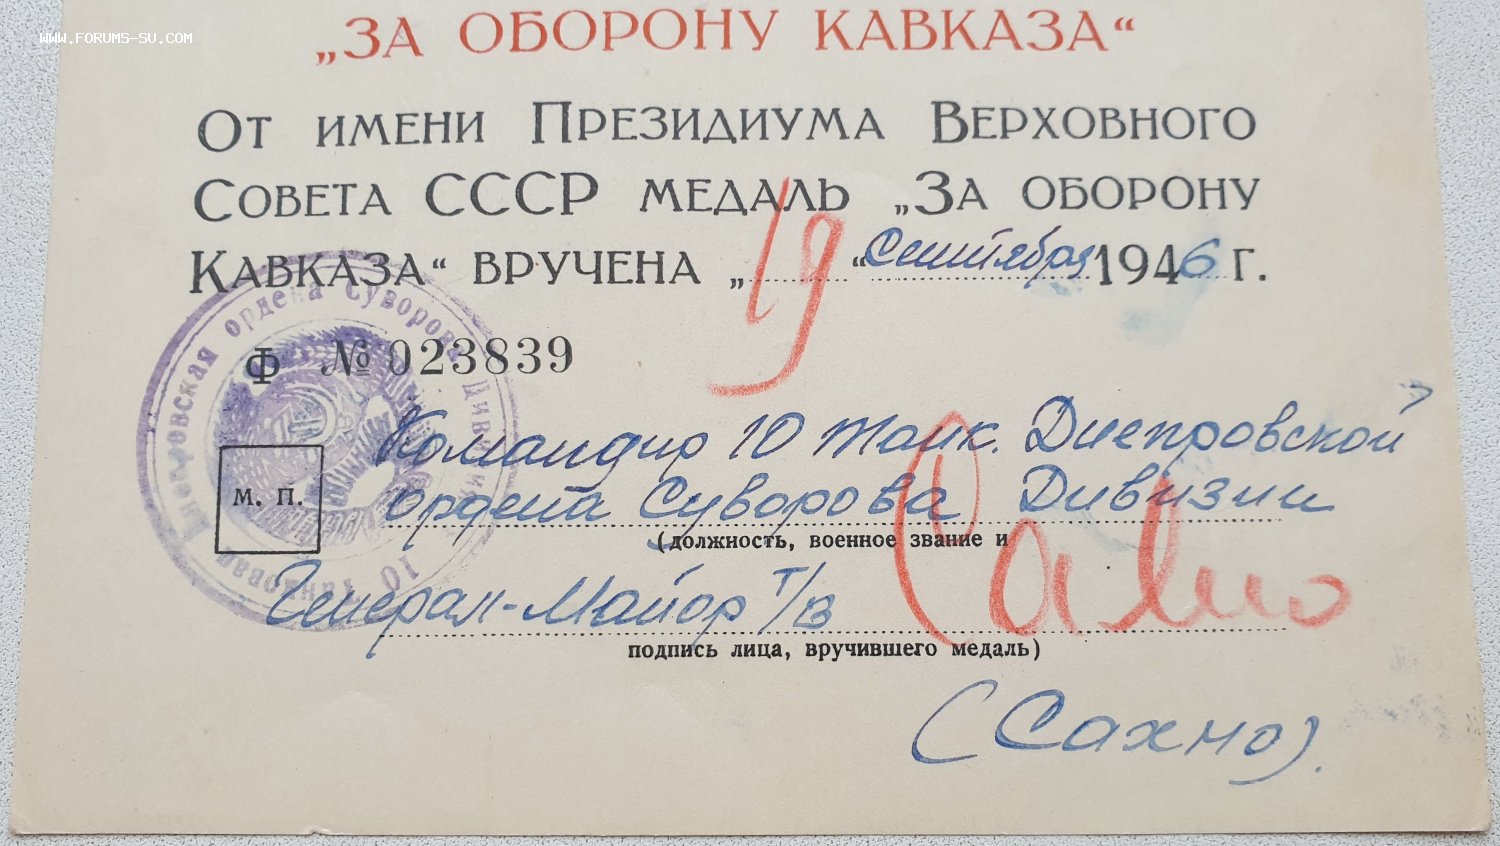 WWW.FORUMS-SU.COM
„ЗА ОБОРОНУ КАВКАЗА“
ОТ ИМЕНИ ПРЕЗИДИУМА ВЕРХОВНОГО
СОВЕТА СССР МЕДАЛЬ „ЗА ОБОРОНУ
КАВКАЗА“ ВРУЧЕНА „19“ Сентября 1946 г.
Ф № 023839
10 Танковая Днепровская ордена Суворова Дивизия
М. П.
Командир 10 танк. Днепровской
ордена Суворова Дивизии
(должность, военное звание и
Генерал-Майор т/в Сахно
подпись лица, вручившего медаль)
(Сахно).